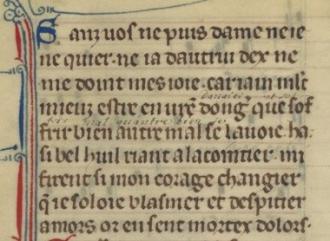 Sanz uos ne puis dame ne ie
ne quier. ne ia dautrui dex ne
me doint mes ioie. car iaim mlt
mieuz estre en vr̄e dong̑ que sof
frir bien autre mal se lauoie. ha.
si bel huil riant alacointier. mi
firent si mon corage changier
q̄ ie soloie blasmer et despitier
amors or en sent mortex dolors.